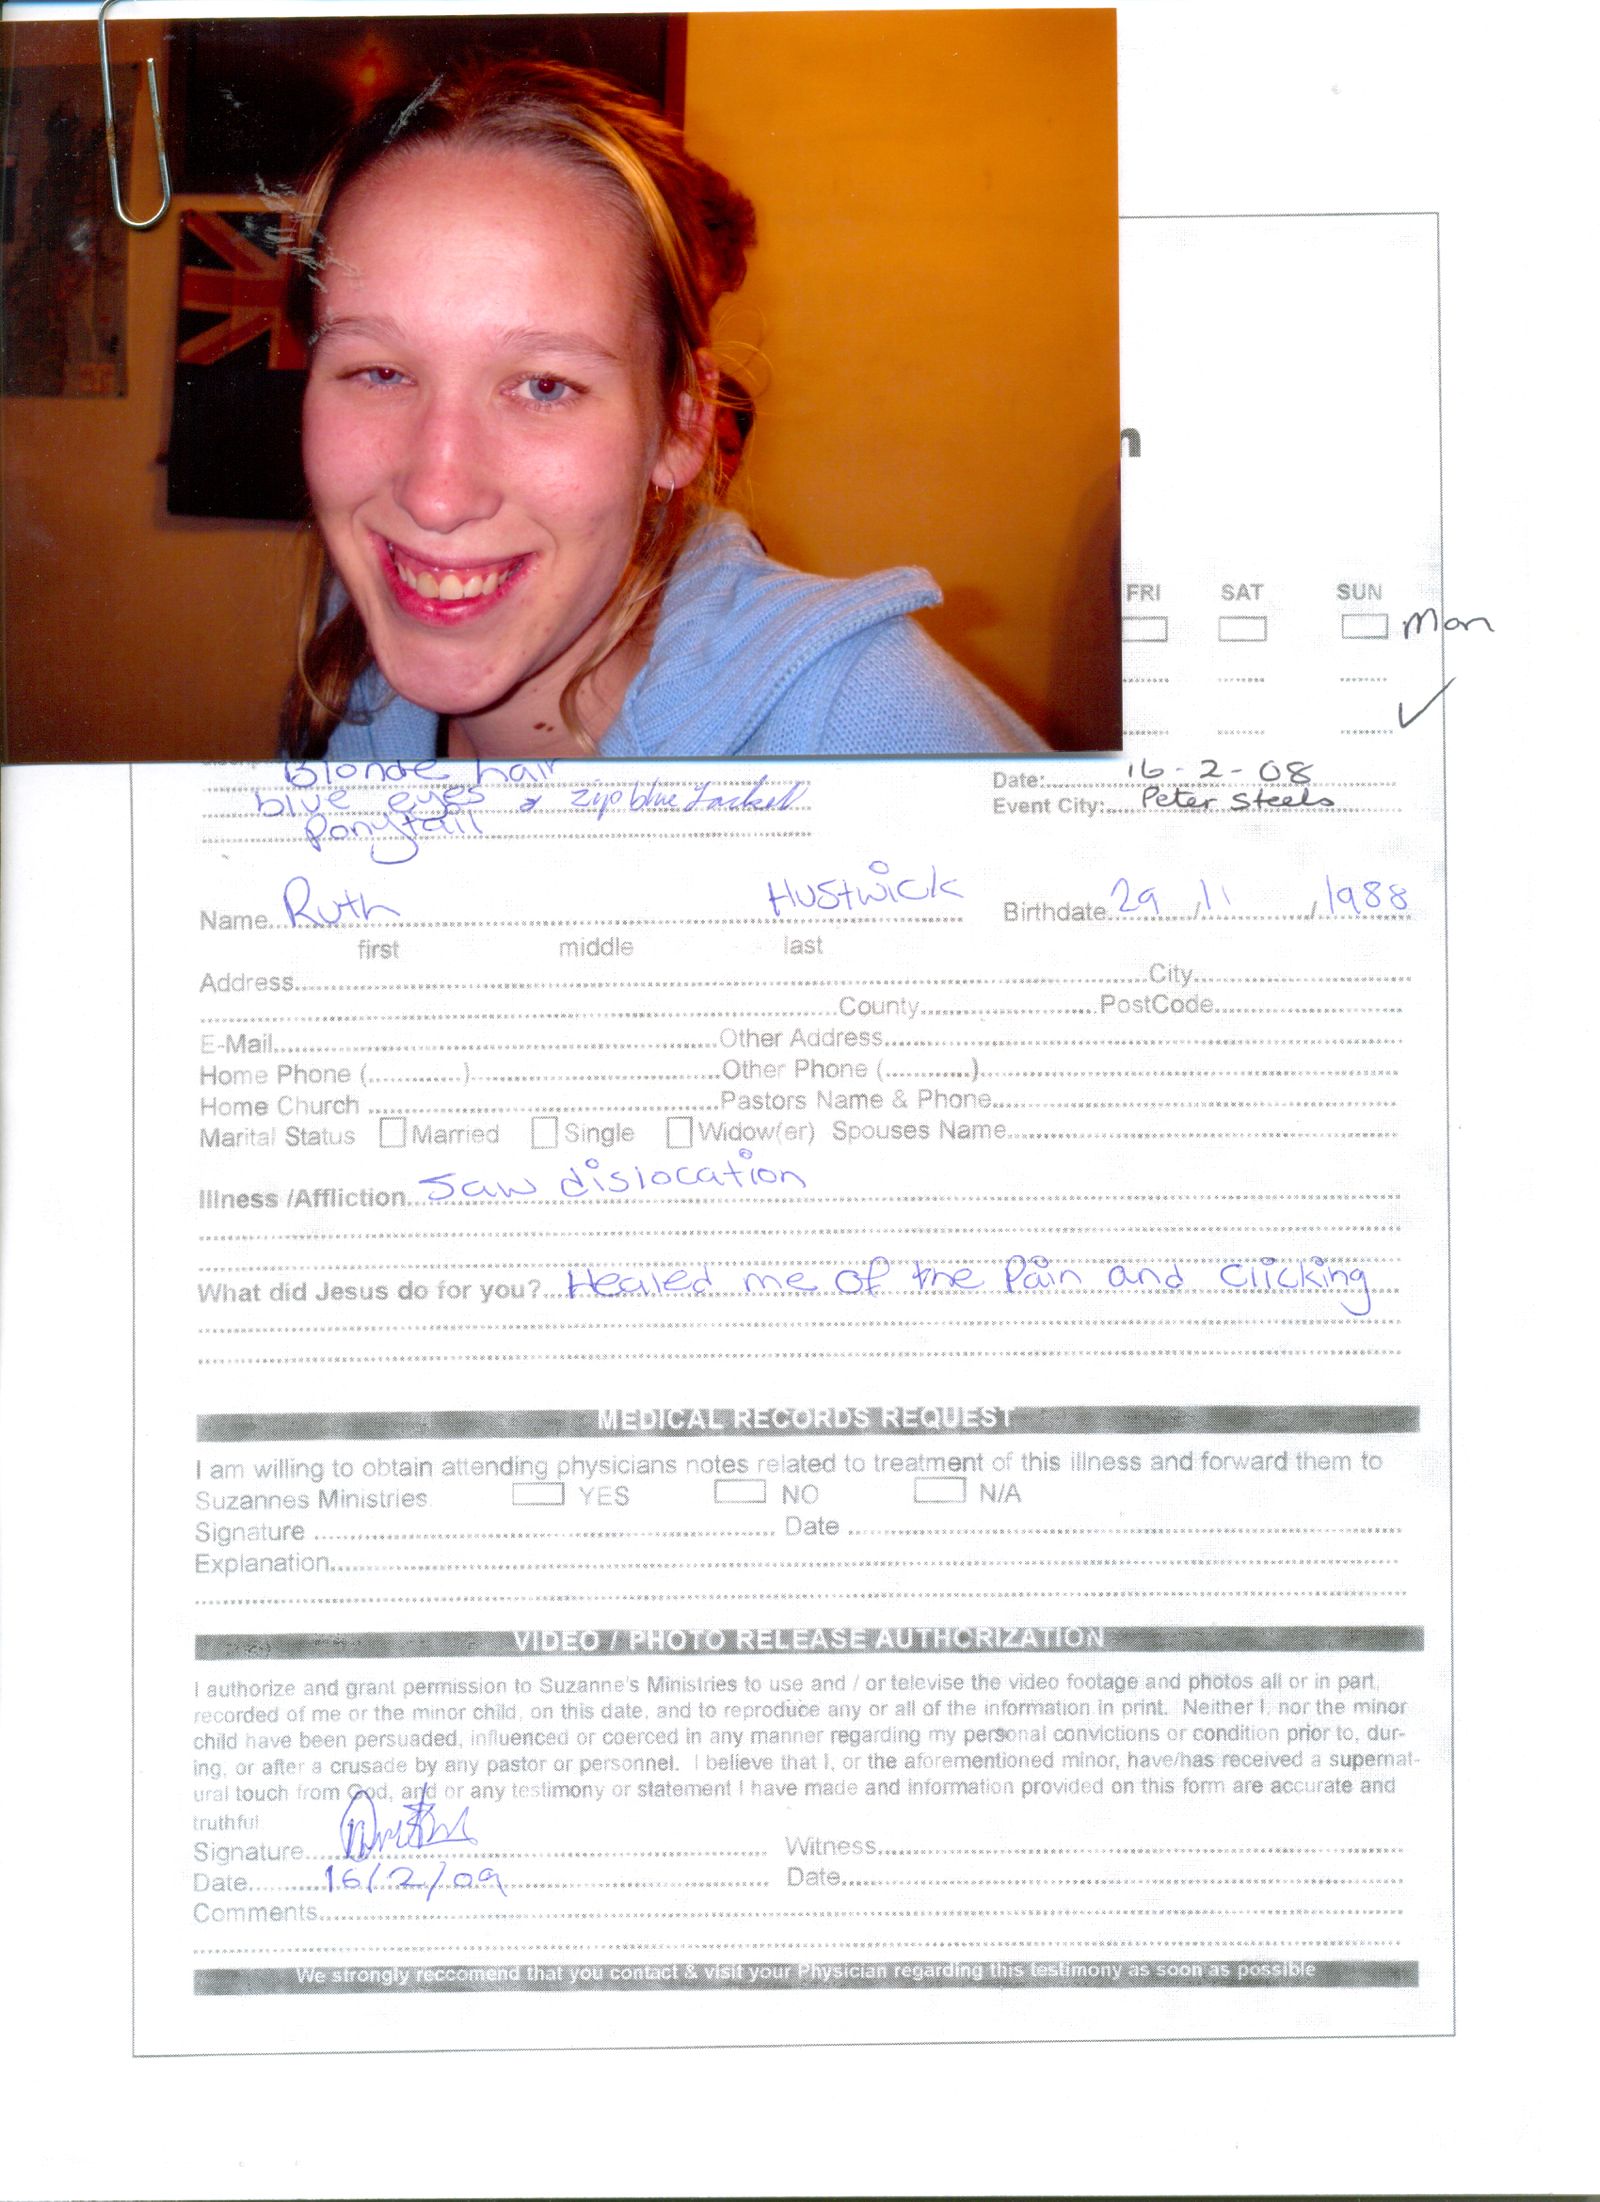 FRI SAT SUN
Mon
Blonde hair
blue eyes & zip blue Jacket
Ponytail
Date: 16-2-08
Event City: Peter Steels
Name Ruth Hustwick Birthdate 29/11/1988
first middle last
Address City
County PostCode
E-Mail Other Address
Home Phone ( ) Other Phone ( )
Home Church Pastors Name & Phone
Marital Status Married Single Widow(er) Spouses Name
Illness /Affliction Jaw dislocation
What did Jesus do for you? Healed me of the Pain and clicking
MEDICAL RECORDS REQUEST
I am willing to obtain attending physicians notes related to treatment of this illness and forward them to
Suzannes Ministries YES NO N/A
Signature Date
Explanation
VIDEO / PHOTO RELEASE AUTHORIZATION
I authorize and grant permission to Suzanne's Ministries to use and / or televise the video footage and photos all or in part,
recorded of me or the minor child, on this date, and to reproduce any or all of the information in print. Neither I, nor the minor
child have been persuaded, influenced or coerced in any manner regarding my personal convictions or condition prior to, dur-
ing, or after a crusade by any pastor or personnel. I believe that I, or the aforementioned minor, have/has received a supernat-
ural touch from God, and or any testimony or statement I have made and information provided on this form are accurate and
truthful
Signature Witness
Date 16/2/09 Date
Comments
We strongly reccomend that you contact & visit your Physician regarding this testimony as soon as possible